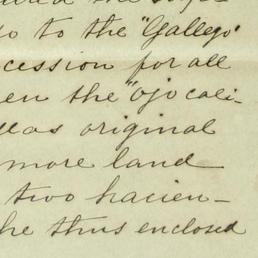 do to the "Gallego"
cession for all
en the "ojo cali-
eas original
more land
two hacien-
he thus enclosed